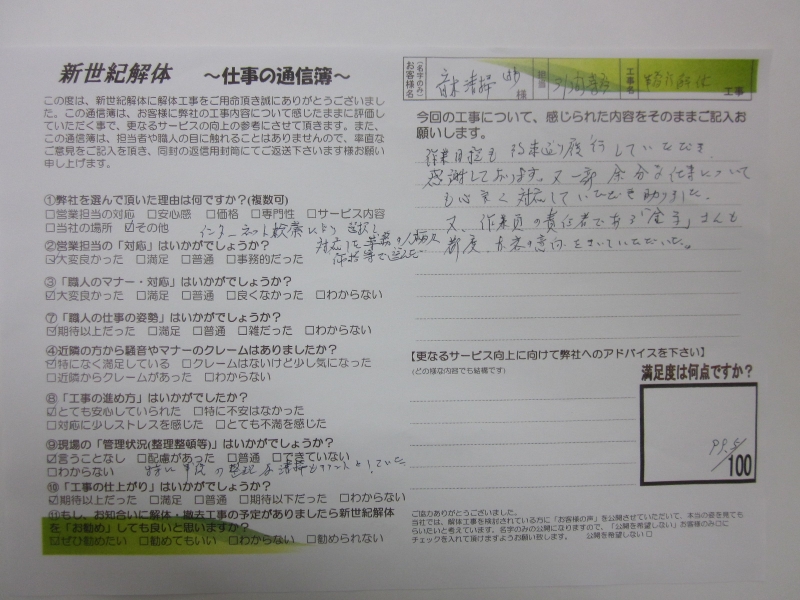 新世紀解体 〜仕事の通信簿〜
この度は、新世紀解体に解体工事をご用命頂き誠にありがとうございまし
た。この通信簿は、お客様に弊社の工事内容について感じたままに評価し
ていただく事で、更なるサービスの向上の参考にさせて頂きます。また、
この通信簿は、担当者や職人の目に触れることはありませんので、率直な
ご意見をご記入を頂き、同封の返信用封筒にてご返送下さいます様お願い
申し上げます。
①弊社を選んで頂いた理由は何ですか?(複数可)
□営業担当の対応 □安心感 □価格 □専門性 □サービス内容
□当社の場所 ☑その他
インターネット検索により選択し
②営業担当の「対応」はいかがでしょうか?
☑大変良かった □満足 □普通 □事務的だった
③「職人のマナー・対応」はいかがでしょうか?
☑大変良かった □満足 □普通 □良くなかった □わからない
⑦「職人の仕事の姿勢」はいかがでしょうか?
☑期待以上だった □満足 □普通 □雑だった □わからない
④近隣の方から騒音やマナーのクレームはありましたか?
☑特になく満足している □クレームはないけど少し気になった
□近隣からクレームがあった □わからない
⑧「工事の進め方」はいかがでしたか?
☑とても安心していられた □特に不安はなかった
□対応に少しストレスを感じた □とても不満を感じた
⑨現場の「管理状況(整理整頓等)」はいかがでしょうか?
☑言うことなし □配慮があった □普通 □できていない
□わからない
⑩「工事の仕上がり」はいかがでしょうか?
☑期待以上だった □満足 □普通 □期待以下だった □わからない
⑪もし、お知合いに解体・撤去工事の予定がありましたら新世紀解体
を「お勧め」しても良いと思いますか?
☑ぜひ勧めたい □勧めてもいい □わからない □勧められない
(名字のみ)
お客様名
様
担当
工事名
工事
今回の工事について、感じられた内容をそのままご記入お
願いします。
作業日程も 約束通り履行していただき
感謝しております。又一部余分な仕事について
も心良く対応していただき助りました。
又、作業員の責任者である「金子」さんも
都度、お客の意向をきいていただいた。
【更なるサービス向上に向けて弊社へのアドバイスを下さい】
(どの様な内容でも結構です)
満足度は何点ですか?
99.5/
100
ご協力ありがとうございました。
当社では、解体工事を検討されている方に「お客様の声」を公開させていただいて、本当の姿を見ても
らいたいと考えています。名字のみの公開になりますので、「公開を希望しない」お客様のみ□に
チェックを入れて頂けますようお願い致します。 公開を希望しない □